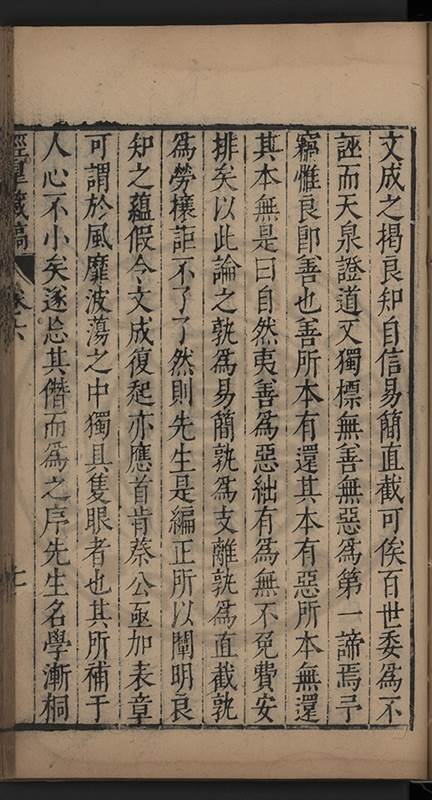 文成之揭良知自信易簡直截可俟百世委爲不
誣而天泉證道又獨標無善無惡爲第一諦焉予
竊惟良即善也善所本有還其本有惡所本無還
其本無是曰自然夷善爲惡絀有爲無不免費安
排矣以此論之孰爲易簡孰爲支離孰爲直截孰
爲勞攘詎不了了然則先生是編正所以闡明良
知之蘊假令文成復起亦應首肯蔡公亟加表章
可謂於風靡波蕩之中獨具隻眼者也其所補于
人心不小矣遂忘其僭而爲之序先生名學漸桐
涇臯藏稿
卷六
七